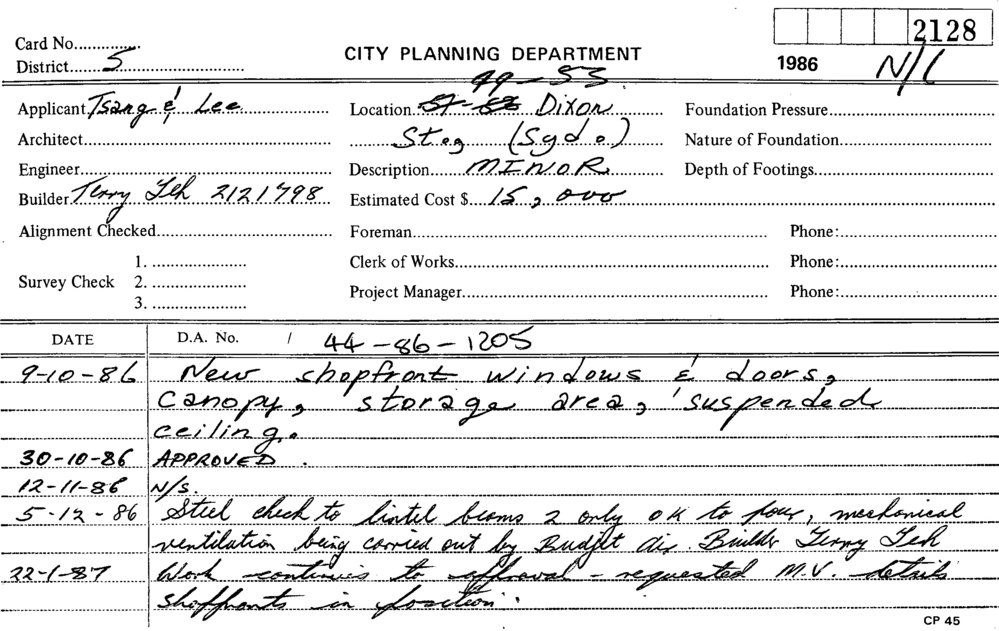 2128
Card No..............
District......5..........................
CITY PLANNING DEPARTMENT
1986 N/C
49-53
Applicant Tsang & Lee
Location 51-53 Dixon
Foundation Pressure
Architect
St. (Syd.)
Nature of Foundation
Engineer
Description MINOR
Depth of Footings
Builder Terry Yeh 2121798
Estimated Cost $ 15,000
Alignment Checked
Foreman
Phone:
Survey Check 1.
2.
3.
Clerk of Works
Phone:
Project Manager
Phone:
DATE D.A. No. / 44-86-1205
9-10-86 New shopfront windows & doors,
canopy, storage area, suspended
ceiling.
30-10-86 APPROVED.
12-11-86 N/S.
5-12-86 Steel check to lintel beams 2 only OK to pour, mechanical
ventilation being carried out by Budjet Air. Builder Terry Yeh
22-1-87 Work continues to approval - requested M.V. details
shopfronts in position.
CP 45